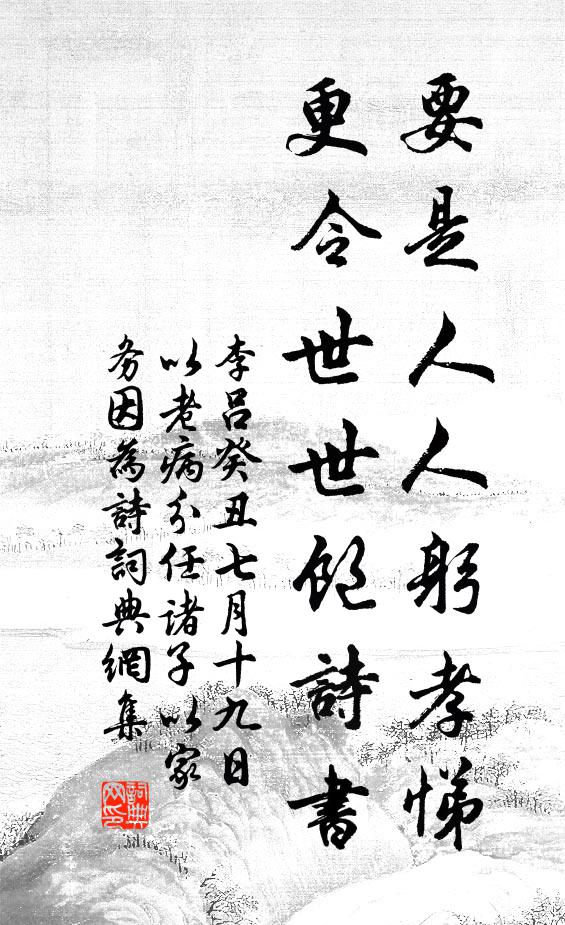 要是人人躬孝悌
更令世世飽詩書
李呂癸丑七月十九日
以老病分任諸子以家
务因為詩詞典網集
詞典
网印